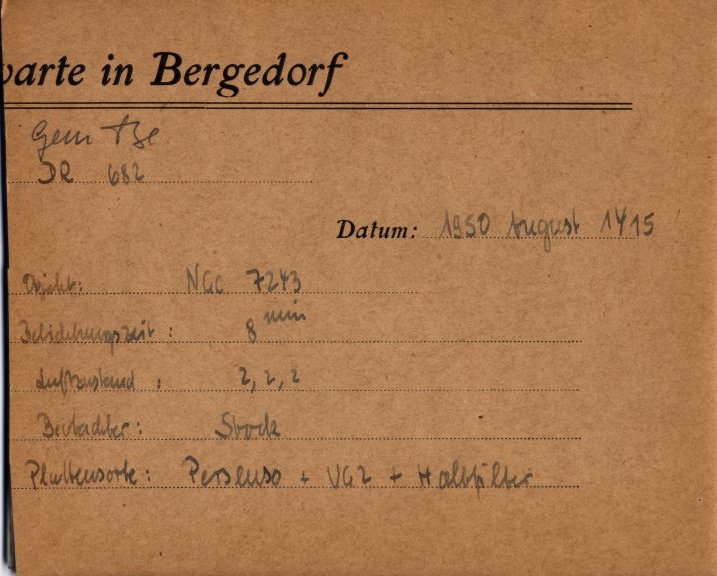 warte in Bergedorf
DR 682
Datum: 1950 August 14/15
Objekt: NGC 7243
Belichtungszeit: 8 min
Luftzustand: 2, 2, 2
Beobachter: Stock
Plattensorte: Persenso + VG2 + Halbfilter